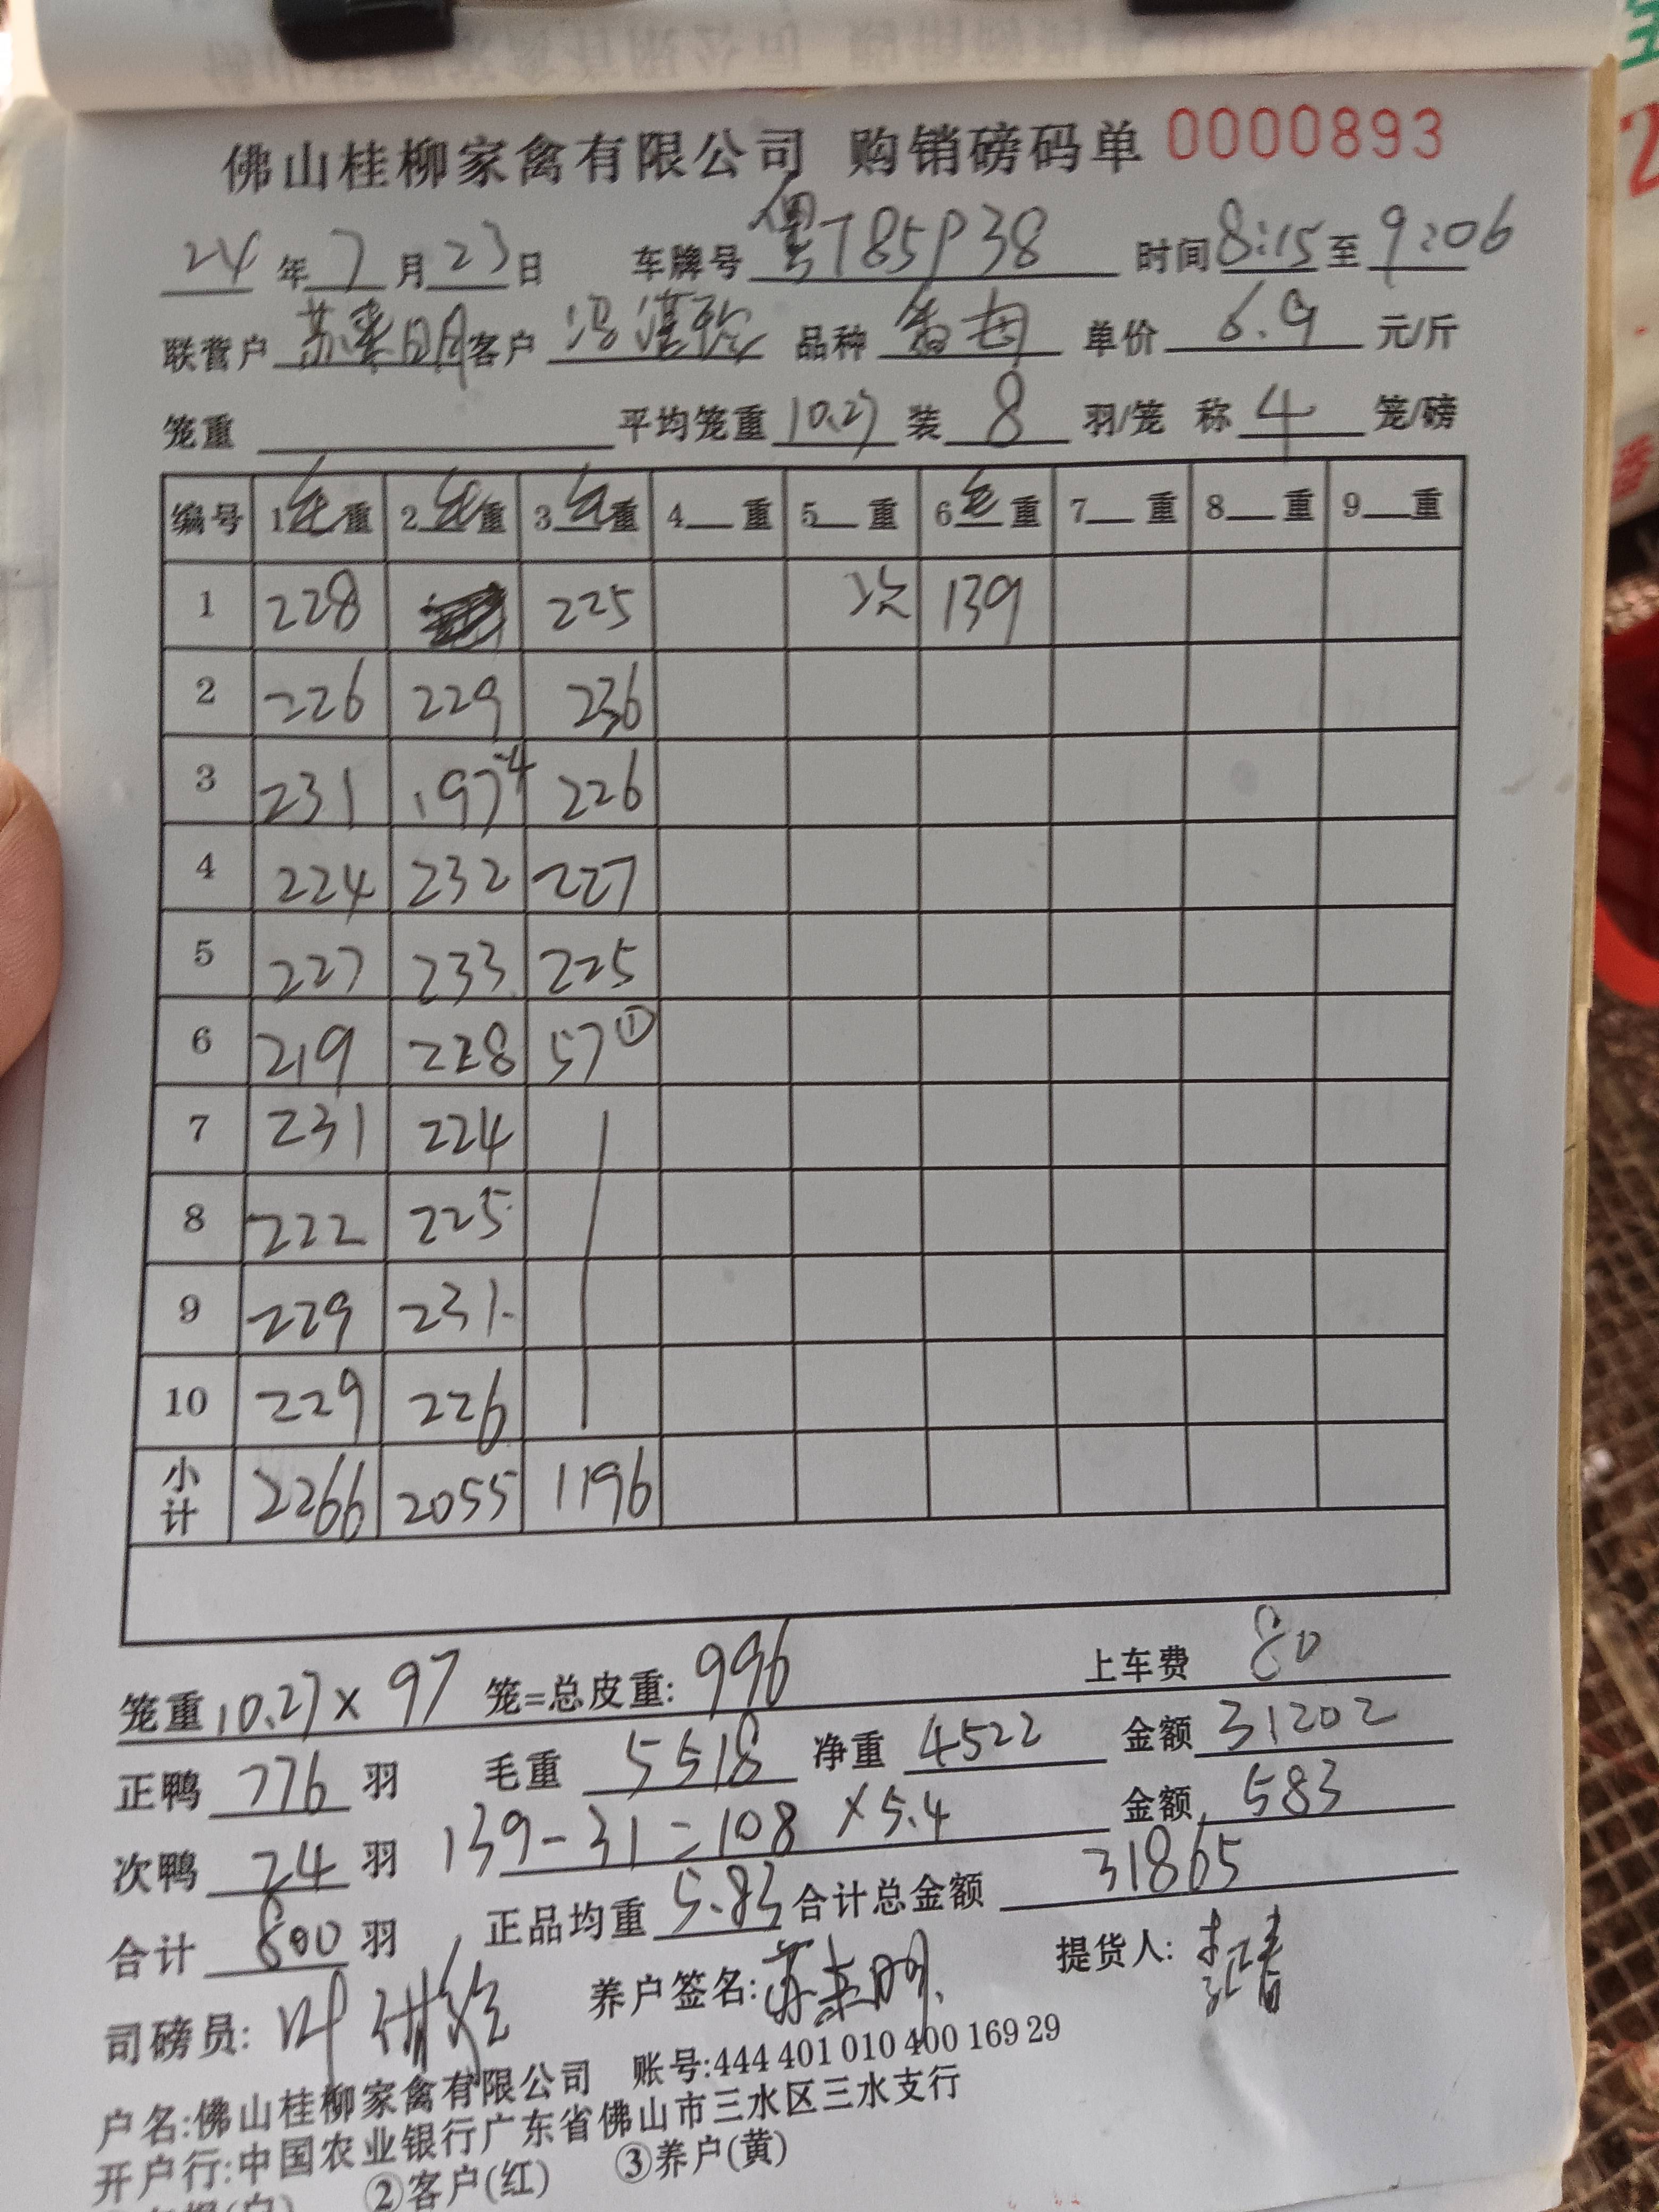 佛山桂柳家禽有限公司 购销磅码单 0000893
24 年 7 月 23 日 车牌号 粤T85P38 时间 8:15 至 9:06
联营户 苏来明 客户 冯 品种 单价 6.9 元/斤
笼重 平均笼重 10.27 装 8 羽/笼 称 4 笼/磅
编号 1 毛 重 2 毛 重 3 毛 重 4 重 5 重 6 毛 重 7 重 8 重 9 重
1 228 225 次 139
2 226 229 236
3 231 197-4 226
4 224 232 227
5 227 233 225
6 219 228 57①
7 231 224
8 222 225
9 229 231
10 229 226
小计 2266 2055 1196
笼重 10.27 × 97 笼=总皮重: 996 上车费 80
正鸭 776 羽 毛重 5518 净重 4522 金额 31202
次鸭 24 羽 139-31=108 ×5.4 金额 583
合计 800 羽 正品均重 5.83 合计总金额 31865
司磅员: 叶 养户签名: 苏来明 提货人:
户名:佛山桂柳家禽有限公司 账号:444 401 010 400 169 29
开户行:中国农业银行广东省佛山市三水区三水支行
②客户(红) ③养户(黄)